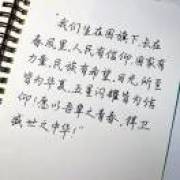 “我们生在国旗下,长在
春风里,人民有信仰,国家有
力量,民族有希望,目光所至
皆为华夏,五星闪耀皆为信
仰!愿以吾辈之青春,捍卫
盛世之中华!”